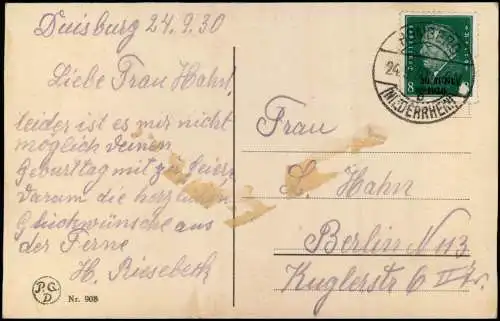 Duisburg 24.9.30
Liebe Frau Hahn!
leider ist es mir nicht
möglich deinen
Geburttag mit zu feiern
darum die herzlichen
Glückwünsche aus
der Ferne
H. Riesebeck
P.G.D.
Nr. 908
8
24.
(NIEDERRHEIN)
Frau
L. Hahn
Berlin N 113
Kuglerstr 6 II Tr.